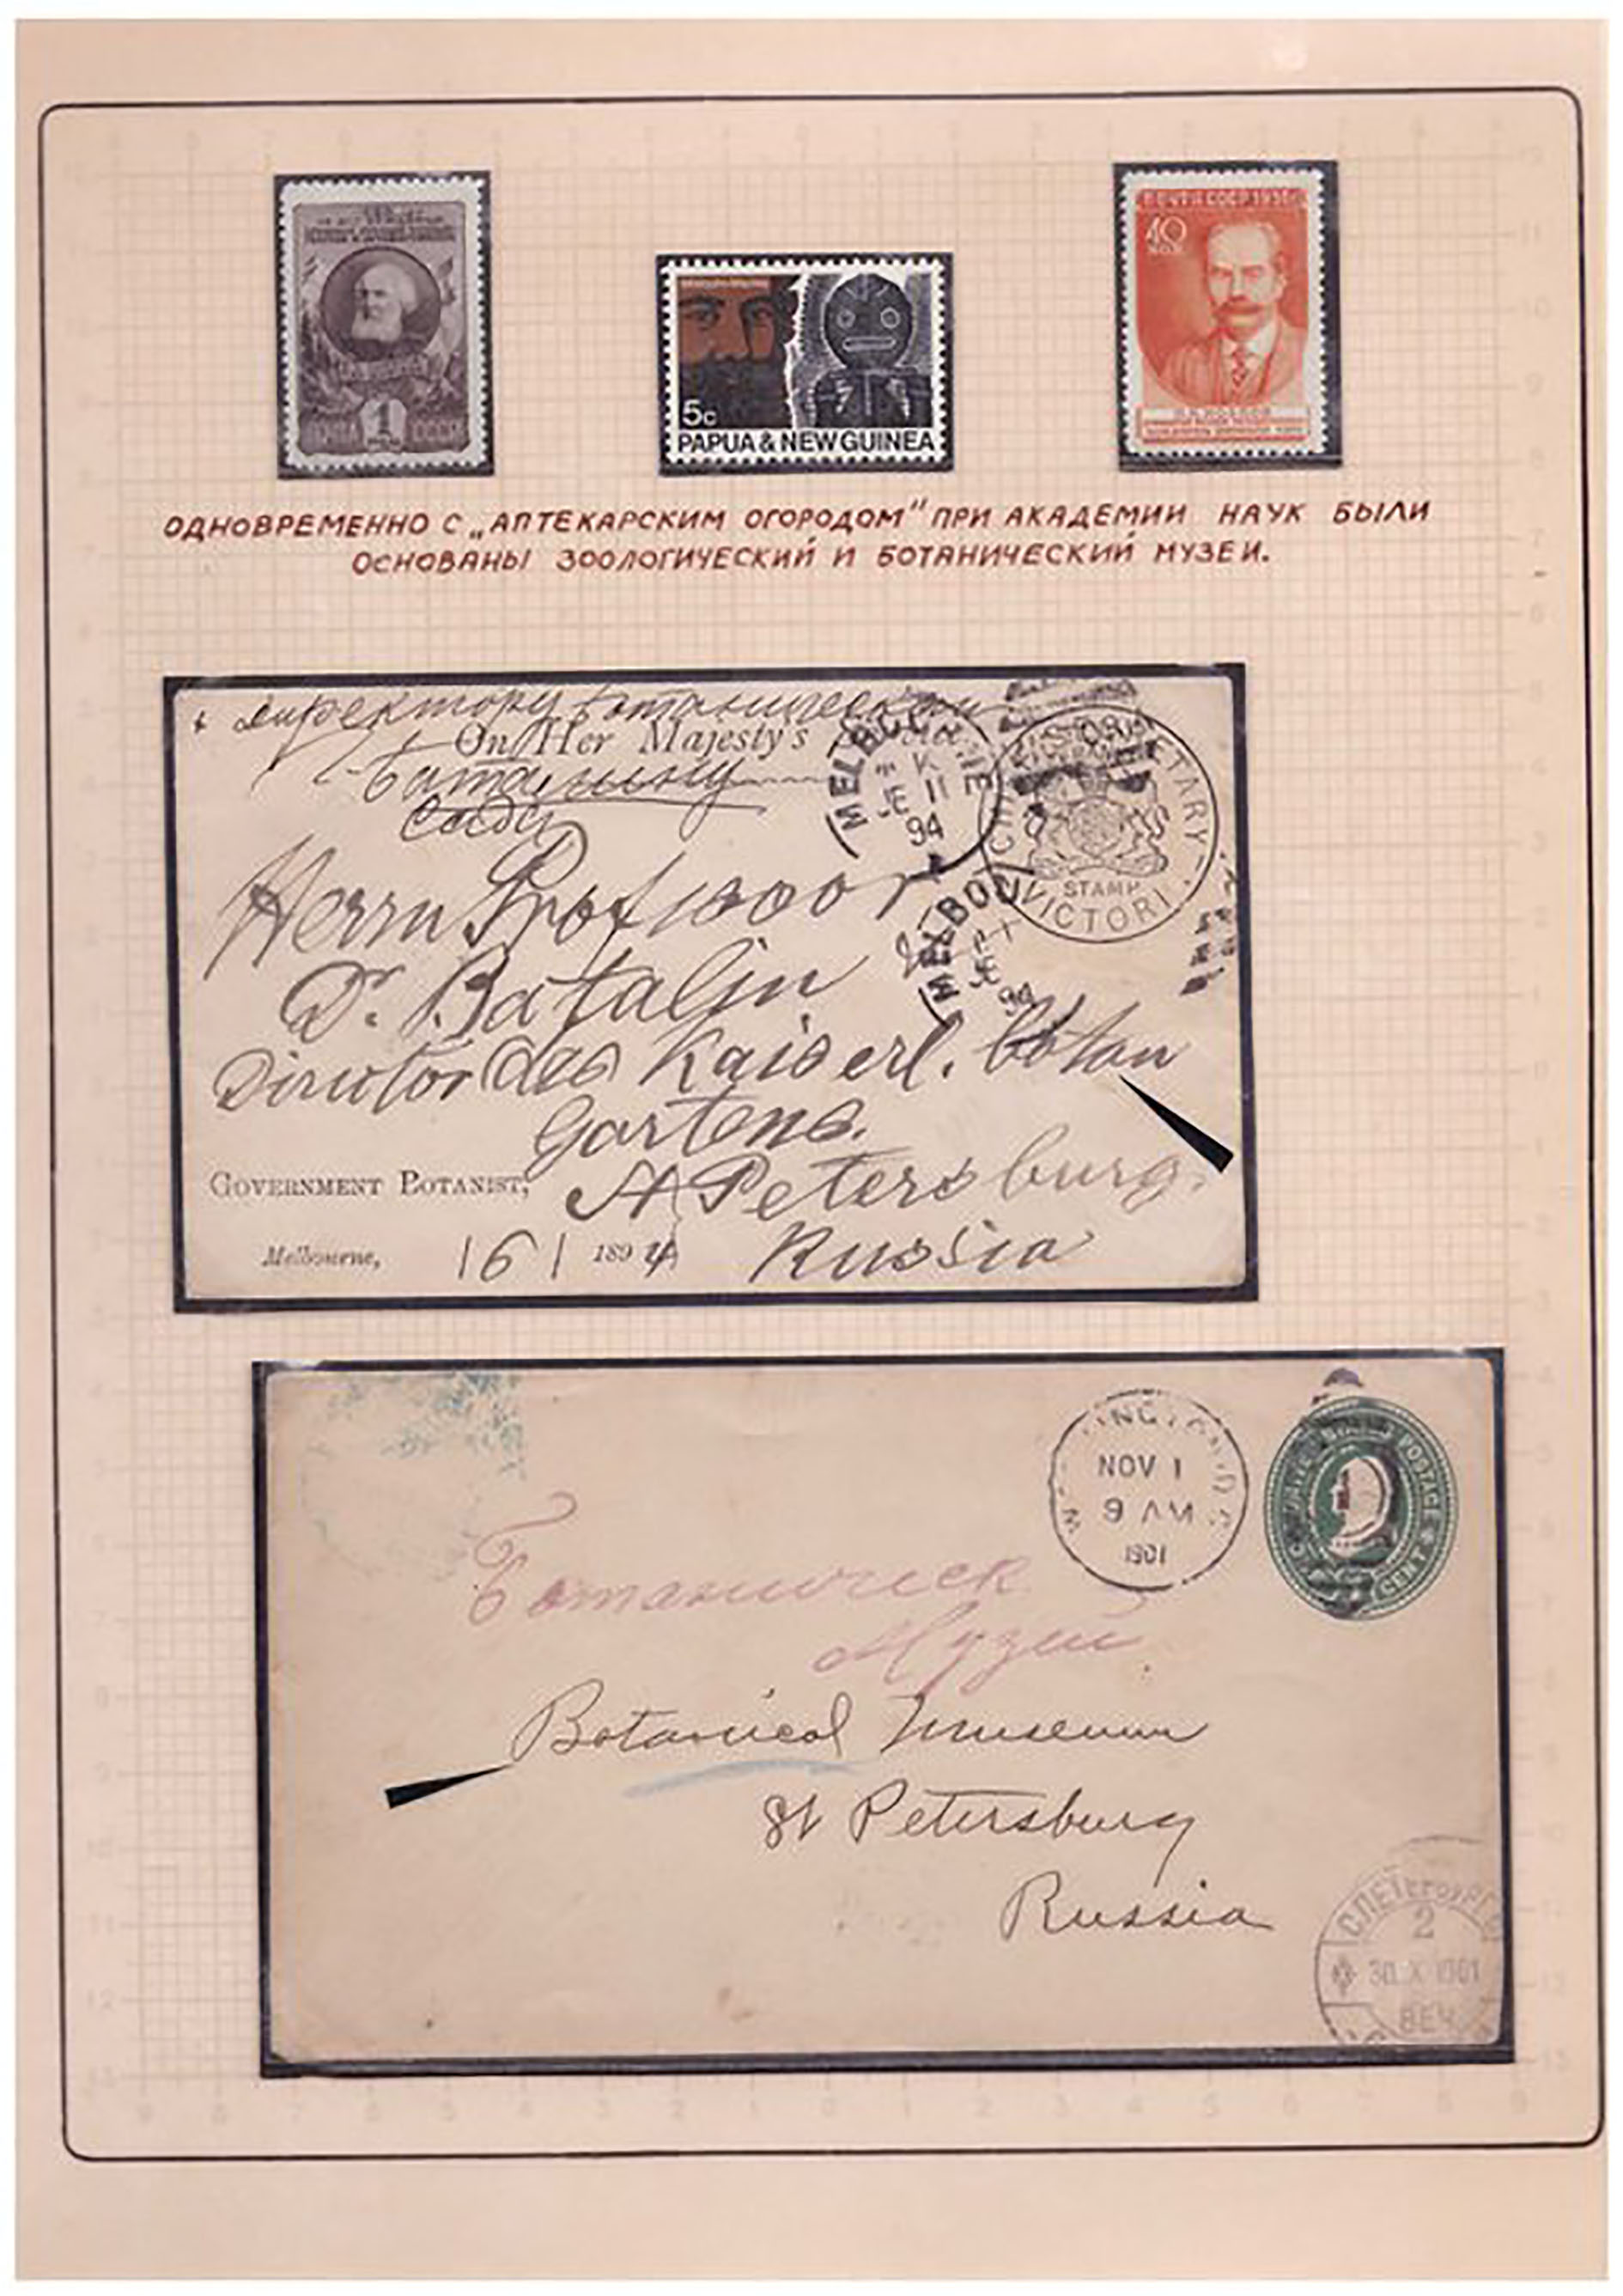 ПОЧТА СССР
1
5c
PAPUA & NEW GUINEA
ПОЧТА СССР 1935
40
ОДНОВРЕМЕННО С „АПТЕКАРСКИМ ОГОРОДОМ" ПРИ АКАДЕМИИ НАУК БЫЛИ
ОСНОВАНЫ ЗООЛОГИЧЕСКИЙ И БОТАНИЧЕСКИЙ МУЗЕИ.
директору ботанического
On Her Majesty's
Баталину
сада
MELBOURNE
JE 11
94
STAMP
VICTORIA
MELBOU
JE
94
Herrn Professor
Dr. Batalin
Director des Kaiserl. botan
Gartens.
St Petersburg.
GOVERNMENT BOTANIST,
Russia
Melbourne, 16 1 1894
NOV 1
9 AM
1901
UNITED STATES POSTAGE
CENT
Ботаническ
Музей
Botanical Museum
St Petersburg
Russia
С.ПЕТЕРБУРГЪ
2
30 X 1901
ВЕЧ